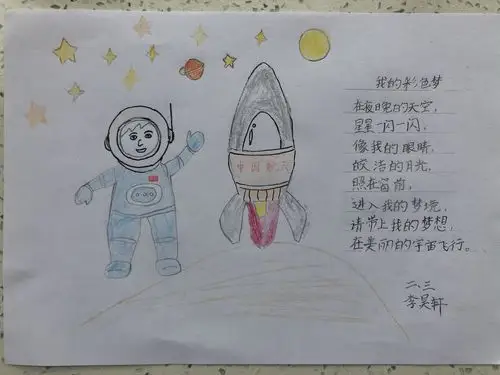 中国航天
我的彩色梦
在夜晚的天空,
星星一闪一闪,
像我的眼睛,
皎洁的月光,
照在窗前,
进入我的梦境,
请带上我的梦想,
在美丽的宇宙飞行。
二、三
李昊轩